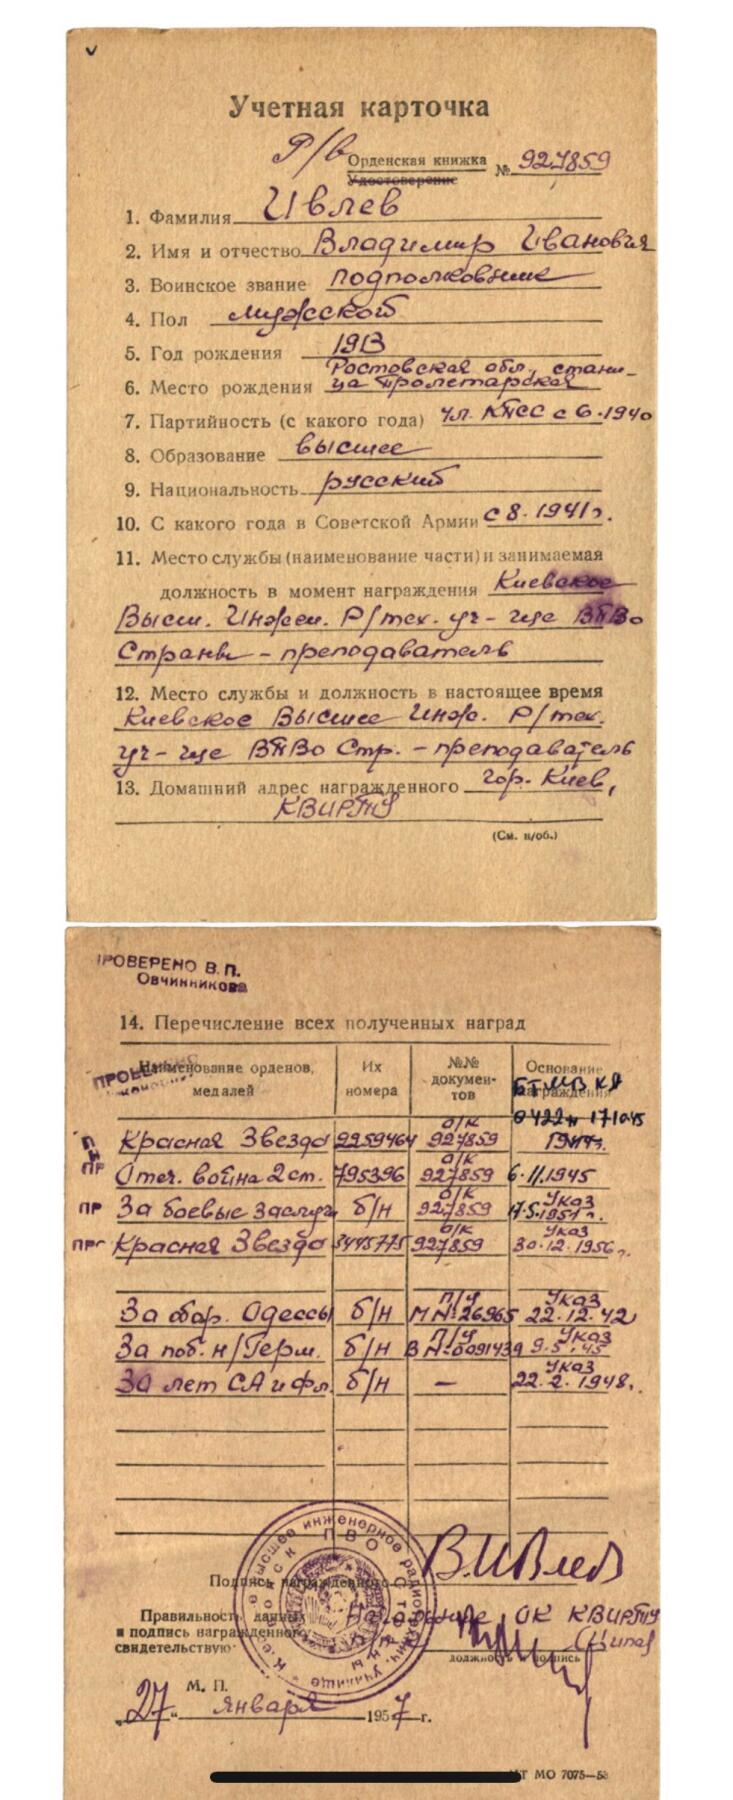 Учетная карточка
Р/в Орденская книжка № 927859
Удостоверение
1. Фамилия Ивлев
2. Имя и отчество Владимир Иванович
3. Воинское звание подполковник
4. Пол мужской
5. Год рождения 1913
Ростовская обл., стани-
6. Место рождения ца Пролетарская
7. Партийность (с какого года) чл. КПСС с 6.1940
8. Образование высшее
9. Национальность русский
10. С какого года в Советской Армии с 8.1941г.
11. Место службы (наименование части) и занимаемая
должность в момент награждения Киевское
Высш. Инжен. Р/тех. уч-ще ВПВО
Страны - преподаватель
12. Место службы и должность в настоящее время
Киевское Высшее Инж. Р/тех.
уч-ще ВПВО Стр. - преподаватель
13. Домашний адрес награжденного гор. Киев,
КВИРТУ
(См. н/об.)
ПРОВЕРЕНО В. П.
Овчинникова
14. Перечисление всех полученных наград
Наименование орденов, медалей Их номера №№ документов Основание награждения
0422н 17.10.45
Красная Звезда 2259464 о/к 927859
ПР Отеч. война 2 ст. 795396 о/к 927859 6.11.1945
ПР За боевые заслуги б/н о/к 927859 Указ 17.5.1951г.
ПР Красная Звезда 3445775 о/к 927859 Указ 30.12.1956г.
За обор. Одессы б/н п/у М №26965 Указ 22.12.42
За поб. н/Герм. б/н п/у В №0091439 Указ 9.5.45
30 лет СА и Фл. б/н — Указ 22.2.1948г.
В.Ивлев
Подпись награжденного
Правильность данных
и подпись награжденного
свидетельствую:
Начальник ОК КВИРТУ
должность и подпись
М. П.
„27“ января 1957 г.
МО 7075—53